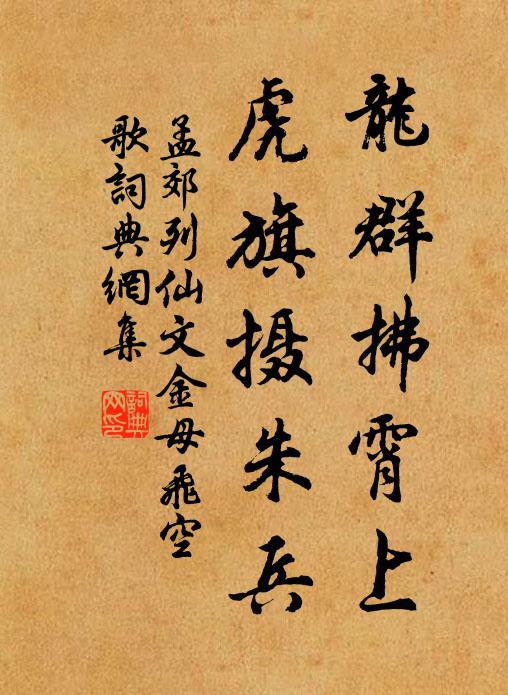 龍群拂霄上
虎旗摄朱兵
孟郊列仙文金母飛空
歌詞典網集
詞典
网印